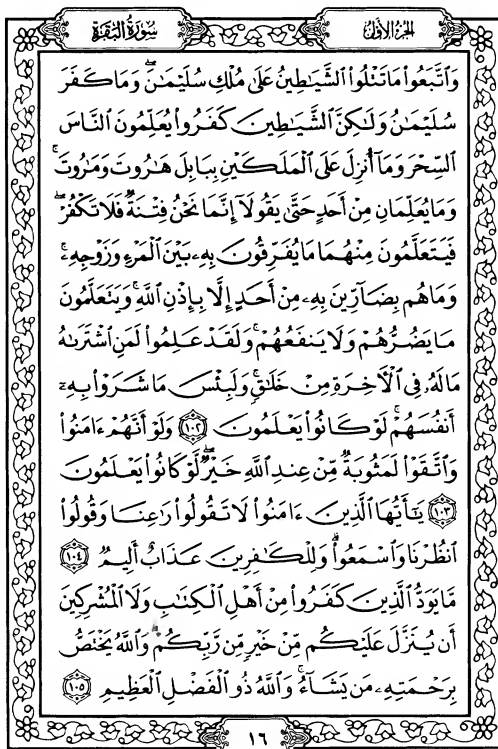 سُورَةُ البَقَرَةِ
الجزء الأول
وَٱتَّبَعُوا۟ مَا تَتْلُوا۟ ٱلشَّيَٰطِينُ عَلَىٰ مُلْكِ سُلَيْمَٰنَۖ وَمَا كَفَرَ
سُلَيْمَٰنُ وَلَٰكِنَّ ٱلشَّيَٰطِينَ كَفَرُوا۟ يُعَلِّمُونَ ٱلنَّاسَ
ٱلسِّحْرَ وَمَآ أُنزِلَ عَلَى ٱلْمَلَكَيْنِ بِبَابِلَ هَٰرُوتَ وَمَٰرُوتَۚ
وَمَا يُعَلِّمَانِ مِنْ أَحَدٍ حَتَّىٰ يَقُولَآ إِنَّمَا نَحْنُ فِتْنَةٌ فَلَا تَكْفُرْۖ
فَيَتَعَلَّمُونَ مِنْهُمَا مَا يُفَرِّقُونَ بِهِۦ بَيْنَ ٱلْمَرْءِ وَزَوْجِهِۦۚ
وَمَا هُم بِضَآرِّينَ بِهِۦ مِنْ أَحَدٍ إِلَّا بِإِذْنِ ٱللَّهِۚ وَيَتَعَلَّمُونَ
مَا يَضُرُّهُمْ وَلَا يَنفَعُهُمْۚ وَلَقَدْ عَلِمُوا۟ لَمَنِ ٱشْتَرَىٰهُ
مَا لَهُۥ فِى ٱلْءَاخِرَةِ مِنْ خَلَٰقٍۚ وَلَبِئْسَ مَا شَرَوْا۟ بِهِۦٓ
أَنفُسَهُمْۚ لَوْ كَانُوا۟ يَعْلَمُونَ ١٠٢ وَلَوْ أَنَّهُمْ ءَامَنُوا۟
وَٱتَّقَوْا۟ لَمَثُوبَةٌ مِّنْ عِندِ ٱللَّهِ خَيْرٌۖ لَّوْ كَانُوا۟ يَعْلَمُونَ
١٠٣ يَٰٓأَيُّهَا ٱلَّذِينَ ءَامَنُوا۟ لَا تَقُولُوا۟ رَٰعِنَا وَقُولُوا۟
ٱنظُرْنَا وَٱسْمَعُوا۟ۗ وَلِلْكَٰفِرِينَ عَذَابٌ أَلِيمٌ ١٠٤
مَّا يَوَدُّ ٱلَّذِينَ كَفَرُوا۟ مِنْ أَهْلِ ٱلْكِتَٰبِ وَلَا ٱلْمُشْرِكِينَ
أَن يُنَزَّلَ عَلَيْكُم مِّنْ خَيْرٍ مِّن رَّبِّكُمْۗ وَٱللَّهُ يَخْتَصُّ
بِرَحْمَتِهِۦ مَن يَشَآءُۚ وَٱللَّهُ ذُو ٱلْفَضْلِ ٱلْعَظِيمِ ١٠٥
١٦